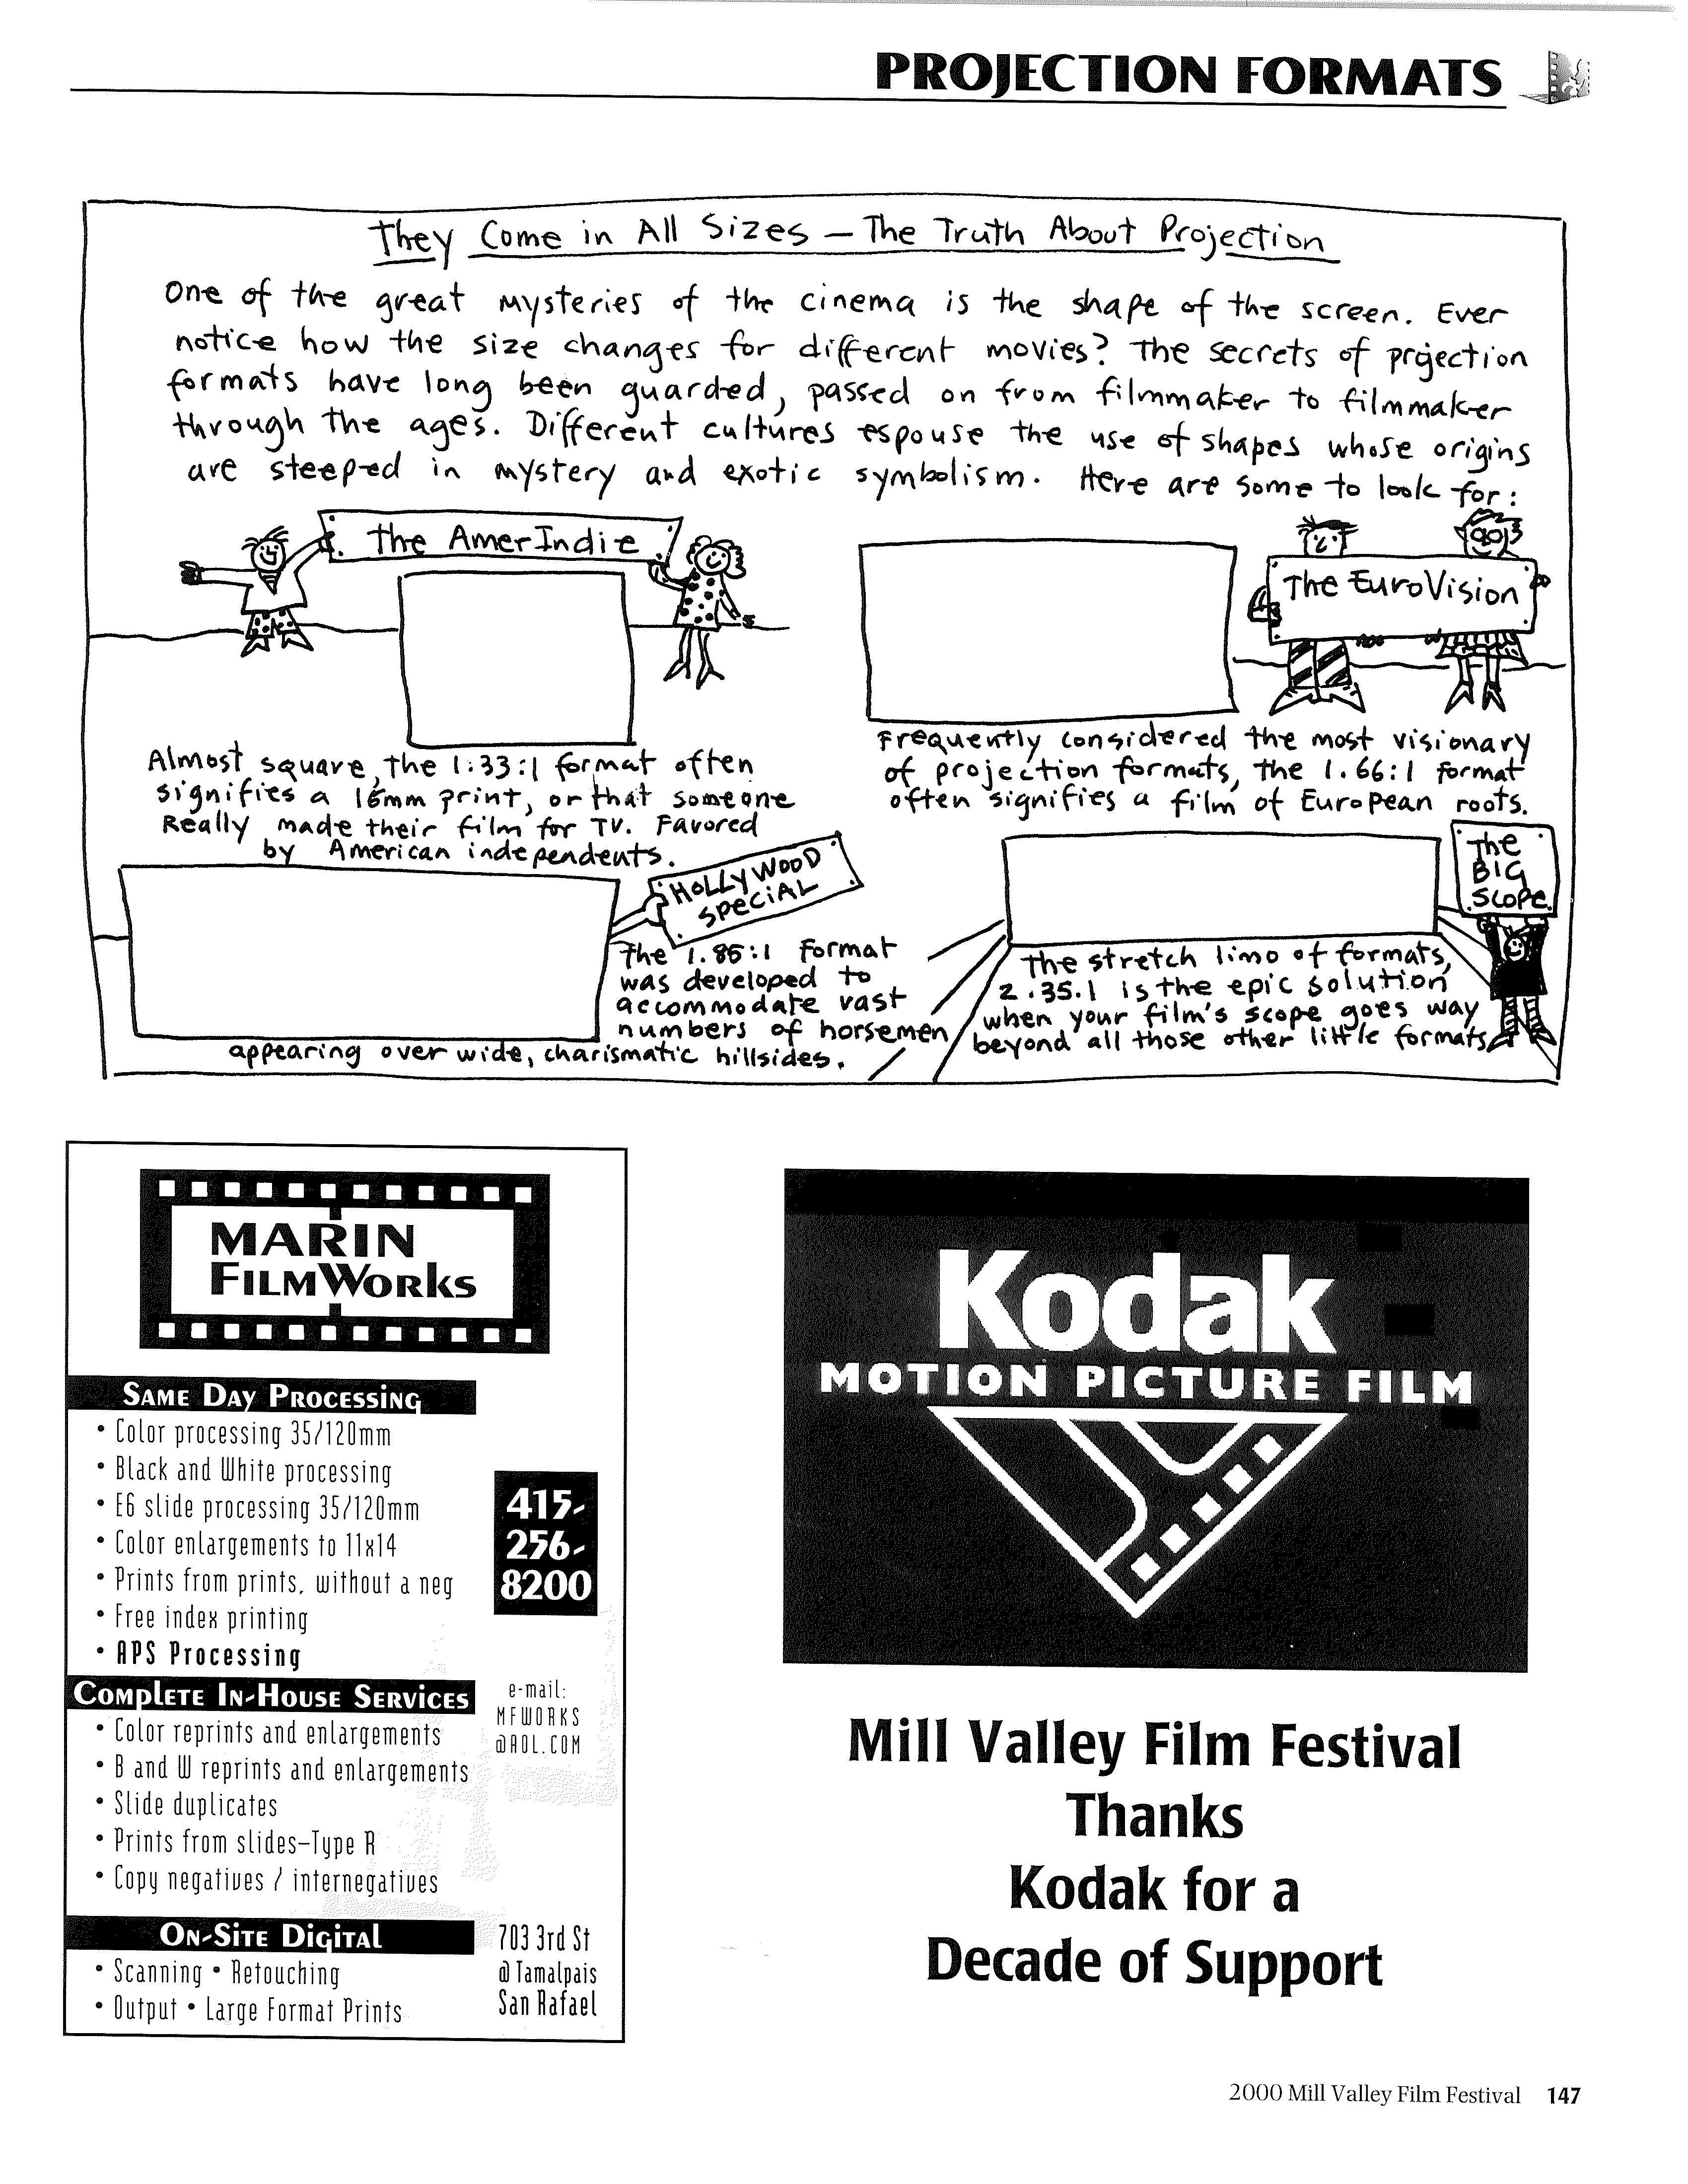 PROJECTION FORMATS
They Come in All Sizes – The Truth About Projection
One of the great mysteries of the cinema is the shape of the screen. Ever
notice how the size changes for different movies? The secrets of projection
formats have long been guarded, passed on from filmmaker to filmmaker
through the ages. Different cultures espouse the use of shapes whose origins
are steeped in mystery and exotic symbolism. Here are some to look for:
The AmerIndie
Almost square, the 1:33:1 format often
signifies a 16mm print, or that someone
Really made their film for TV. Favored
by American independents.
The EuroVision
Frequently considered the most visionary
of projection formats, the 1.66:1 format
often signifies a film of European roots.
HOLLYWOOD
SPECIAL
The 1.85:1 format
was developed to
accommodate vast
numbers of horsemen
appearing over wide, charismatic hillsides.
The
BIG
SCOPE
The stretch limo of formats,
2.35.1 is the epic solution
when your film's scope goes way
beyond all those other little formats
MARIN
FILMWORKS
SAME DAY PROCESSING
• Color processing 35/120mm
• Black and White processing
• E6 slide processing 35/120mm
• Color enlargements to 11x14
• Prints from prints, without a neg
• Free index printing
• APS Processing
415-
256-
8200
COMPLETE IN-HOUSE SERVICES
• Color reprints and enlargements
• B and W reprints and enlargements
• Slide duplicates
• Prints from slides–Type R
• Copy negatives / internegatives
e-mail:
MFWORKS
@AOL.COM
ON-SITE DIGITAL
• Scanning • Retouching
• Output • Large Format Prints
703 3rd St
@ Tamalpais
San Rafael
Kodak
MOTION PICTURE FILM
Mill Valley Film Festival
Thanks
Kodak for a
Decade of Support
2000 Mill Valley Film Festival 147